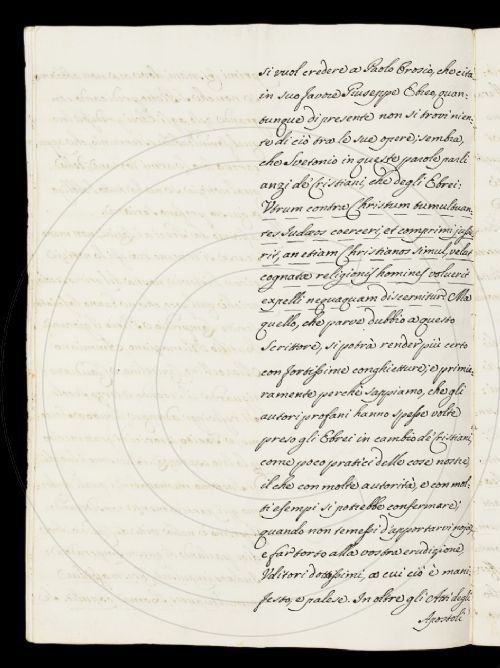 si vuol credere a Paolo Orosio, che cita
in suo favore Giuseppe Ebreo, quan-
tunque di presente non si trovi nien-
te di ciò tra le sue opere; sembra,
che Svetonio in queste parole parli
anzi de' Cristiani, che degli Ebrei:
Utrum contra Christum tumultuan-
tes Judæos coerceri, et comprimi jusse-
rit, an etiam Christianos simul, velut
cognatæ religionis homines voluerit
expelli nequaquam discernitur. Ma
quello, che parve dubbio a questo
Scrittore, si potrà render più certo
con fortissime conghietture; e primie-
ramente perchè sappiamo, che gli
autori profani hanno spesse volte
preso gli Ebrei in cambio de' Cristiani,
come poco pratici delle cose nostre,
il che con molte autorità, e con mol-
ti esempi si potrebbe confermare;
quando non temessi d'apportarvi noja,
e far torto alla vostra erudizione,
Uditori dottissimi, a cui ciò è mani-
festo, e palese. In oltre gli Atti degli
Apostoli